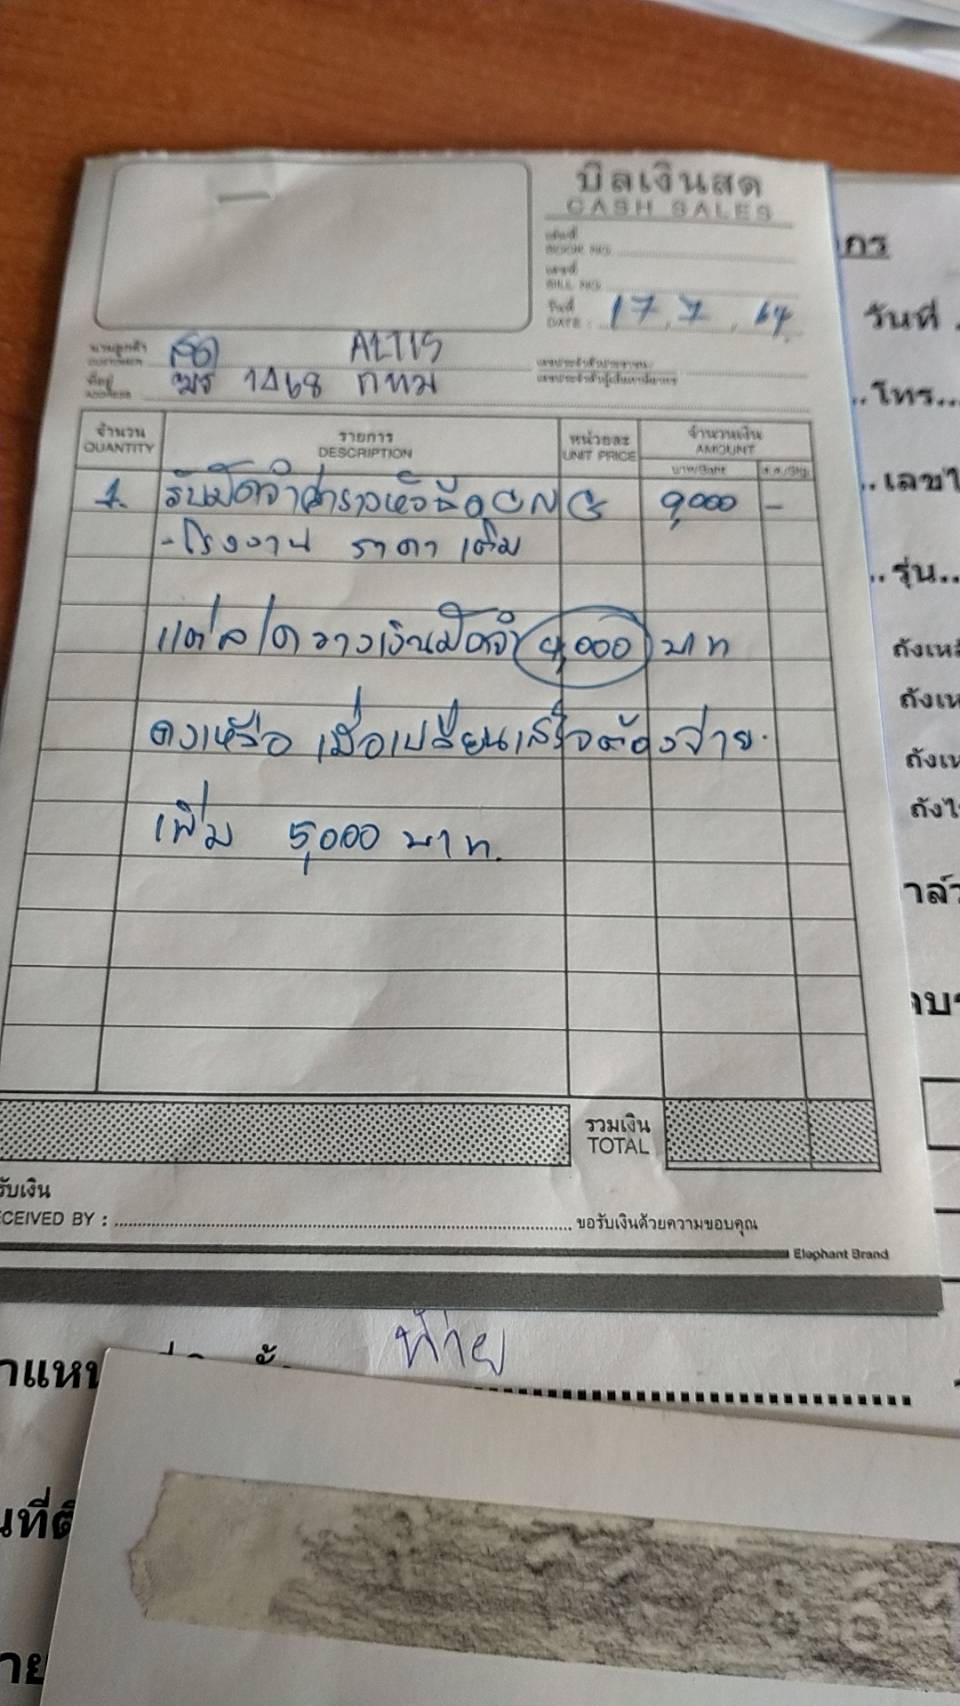 บิลเงินสด
CASH SALES
เล่มที่
BOOK NO.
เลขที่
BILL NO.
วันที่
DATE : 17 , 7 , 64
กร
วันที่ .
นามลูกค้า
CUSTOMER
สด ALTIS
ที่อยู่
ADDRESS
1468 กทม
เลขประจำตัวประชาชน
เลขประจำตัวผู้เสียภาษีอากร
..โทร...
จำนวน
QUANTITY
รายการ
DESCRIPTION
หน่วยละ
UNIT PRICE
จำนวนเงิน
AMOUNT
บาท/Baht
ส.ต./Stg.
..เลขใ
1. รับมัดจำค่ารางหัวฉีด CNG 9,000 -
- โรงงาน ราคา เต็ม
..รุ่น..
แต่ล/ค วางเงินมัดจำ 4,000 บาท
ถังเหล็
ถังเห
คงเหลือ เมื่อเปลี่ยนเสร็จต้องจ่าย
ถังเห
ถังไ
เพิ่ม 5,000 บาท.
รวมเงิน
TOTAL
รับเงิน
CEIVED BY :
ขอรับเงินด้วยความขอบคุณ
Elephant Brand
ท้าย